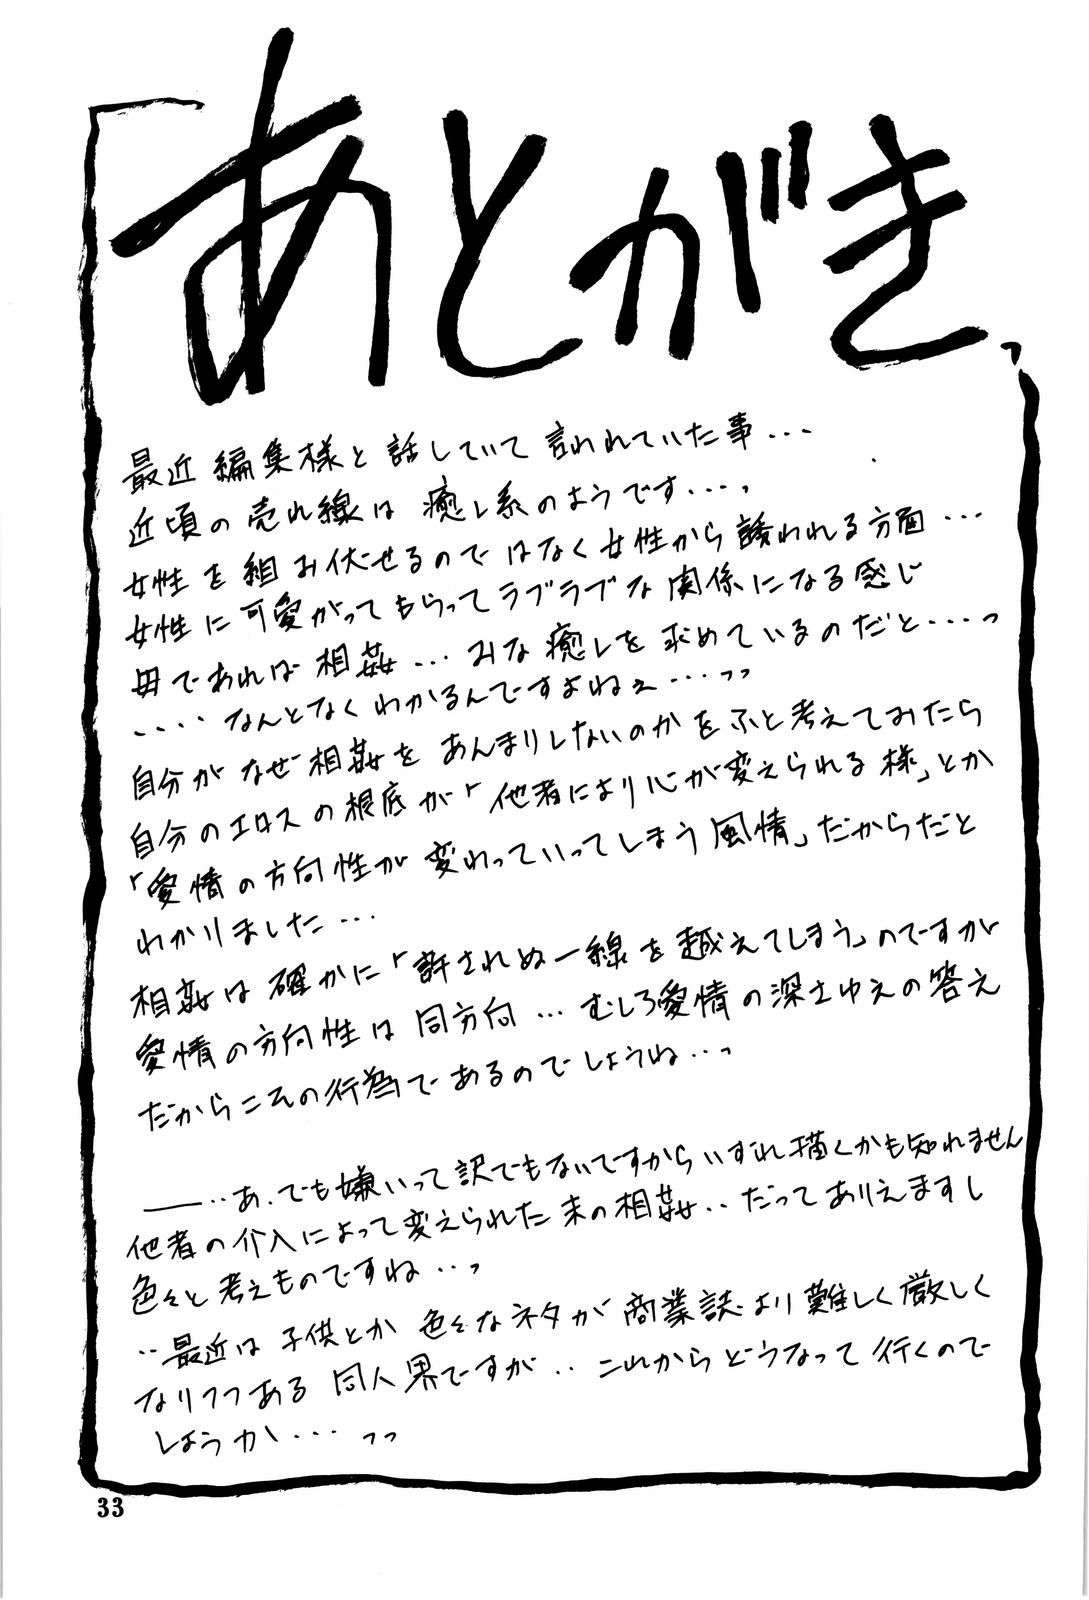 あとがき
最近 編集様と 話していて 言われていた事・・・
近頃の 売れ線は 癒し系のようです・・・。
女性を組み伏せるのではなく女性から誘われる方面・・・
女性に可愛がってもらってラブラブな関係になる感じ
母であれば相姦・・・みな癒しを求めているのだと・・・っ
・・・・なんとなくわかるんですよねぇ・・・っっ
自分がなぜ相姦をあんまりしないのかをふと考えてみたら
自分のエロスの根底が「他者により心が変えられる様」とか
「愛情の方向性が変わっていってしまう風情」だからだと
わかりました・・・
相姦は確かに「許されぬ一線を越えてしまう」のですが
愛情の方向性は同方向・・・むしろ愛情の深さゆえの答え
だからこその行為であるのでしょうね・・・っ
――・・あ、でも嫌いって訳でもないですからいずれ描くかも知れません
他者の介入によって変えられた末の相姦・・だってありえますし
色々と考えものですね・・・っ
・・最近は子供とか色々なネタが商業誌より難しく厳しく
なりつつある同人界ですが・・これからどうなって行くので
しょうか・・・っっ
33